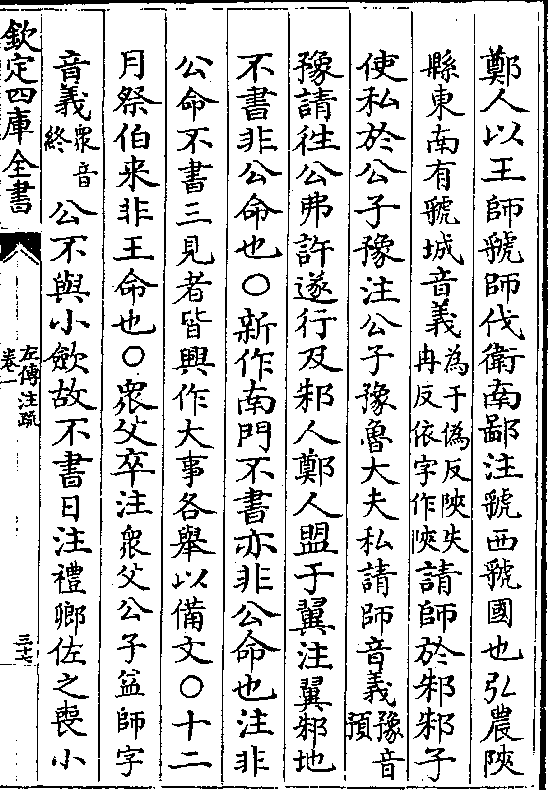 鄭人以王師虢師伐衛南鄙注虢西虢國也弘農陝
縣東南有虢城音義為于偽反陝失冉反依字作陝請師於邾邾子
使私於公子豫注公子豫魯大夫私請師音義豫音預
豫請徃公弗許遂行及邾人鄭人盟于翼注翼邾地
不書非公命也○新作南門不書亦非公命也注非
公命不書三見者皆興作大事各舉以備文○十二
月祭伯来非王命也○衆父卒注衆父公子益師字
音義衆音終公不與小斂故不書日注禮卿佐之喪小
欽定四庫全書
左傳注疏
卷一
三十七